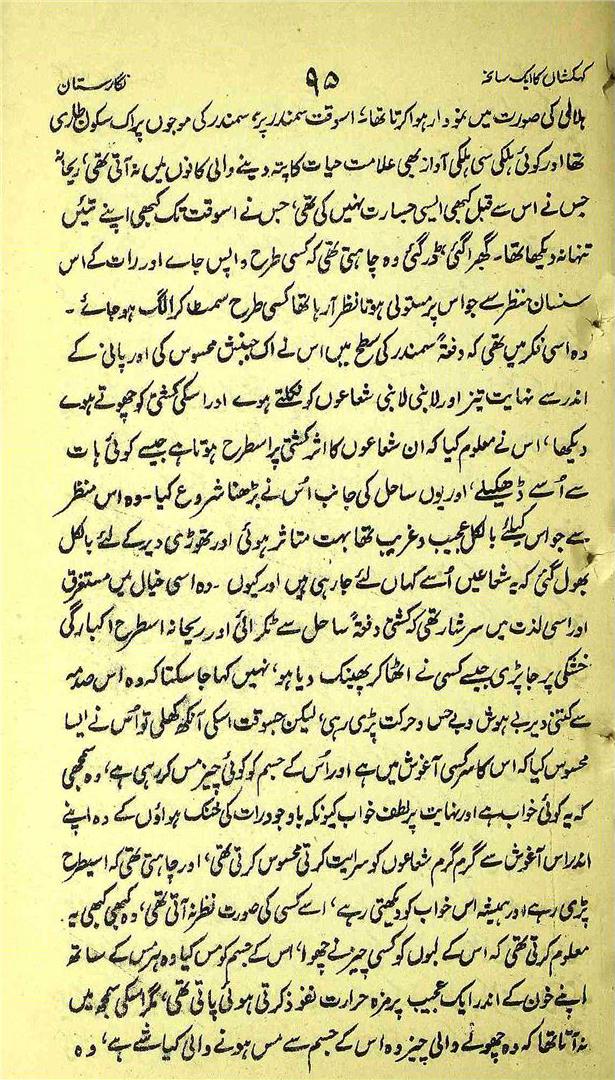 کہکشاں کا ایک سانحہ ۹۵ نگارستان
ہلالی کی صورت میں نمودار ہوا کرتا تھا، اسوقت سمندر پر، سمندر کی موجوں پر اک سکون طاری
تھا اور کوئی ہلکی سی ہلکی آواز بھی علامت حیات کا پتہ دینے والی کانوں میں نہ آتی تھی، ریحانہ
جس نے اس سے قبل کبھی ایسی جسارت نہیں کی تھی، جس نے اسوقت تک کبھی اپنے تیئں
تنہا نہ دیکھا تھا۔ گھبرا گئی ڈر گئی وہ چاہتی تھی کہ کسی طرح واپس جاے اور رات کے اس
سنسان منظر سے جو اس پر مستولی ہوتا نظر آ رہا تھا کسی طرح سمٹ کر الگ ہو جائے۔
وہ اسی فکر میں تھی کہ دفعۃً سمندر کی سطح میں اس نے اک جنبش محسوس کی اور پانی کے
اندر سے نہایت تیز اور لانبی لانبی شعاعوں کو نکلتے ہوے اور اسکی کشتی کو چھوتے ہوے
دیکھا، اس نے معلوم کیا کہ ان شعاعوں کا اثر کشتی پر اسطرح ہوتا ہے جیسے کوئی ہات
سے اُسے ڈھکیلے، اور یوں ساحل کی جانب اُس نے بڑھنا شروع کیا۔ وہ اس منظر
سے جو اس کیلئے بالکل عجیب و غریب تھا بہت متاثر ہوئی اور تھوڑی دیر کے لئے بالکل
بھول گئی کہ یہ شعاعیں اُسے کہاں لئے جا رہی ہیں اور کیوں۔ وہ اسی خیال میں مستغرق
اور اسی لذت میں سرشار تھی کہ کشتی دفعۃً ساحل سے ٹکرائی اور ریحانہ اسطرح اکبارگی
خشکی پر جا پڑی جیسے کسی نے اٹھا کر پھینک دیا ہو، نہیں کہا جا سکتا کہ وہ اس صدمہ
سے کتنی دیر بے ہوش و بے حس و حرکت پڑی رہی، لیکن جسوقت اسکی آنکھ کھلی تو اُس نے ایسا
محسوس کیا کہ اس کا سر کسی آغوش میں ہے اور اُس کے جسم کو کوئی چیز مس کر رہی ہے، وہ سمجھی
کہ یہ کوئی خواب ہے اور نہایت پر لطف خواب کیونکہ باوجود رات کی خنک ہواؤں کے وہ اپنے
اندر اس آغوش سے گرم گرم شعاعوں کو سرایت کرتی محسوس کرتی تھی، اور چاہتی تھی کہ اسیطرح
پڑی رہے اور ہمیشہ اس خواب کو دیکھتی رہے، اسے کسی کی صورت نظر نہ آتی تھی، وہ کبھی کبھی یہ
معلوم کرتی تھی کہ اس کے لبوں کو کسی چیز نے چھوا، اس کے جسم کو مس کیا وہ ہر مس کے ساتھ
اپنے خون کے اندر ایک عجیب پر مزہ حرارت نفوذ کرتی ہوئی پاتی تھی، مگر اسکی سمجھ میں
نہ آتا تھا کہ وہ چھونے والی چیز وہ اس کے جسم سے مس ہونے والی کیا شے ہے، وہ